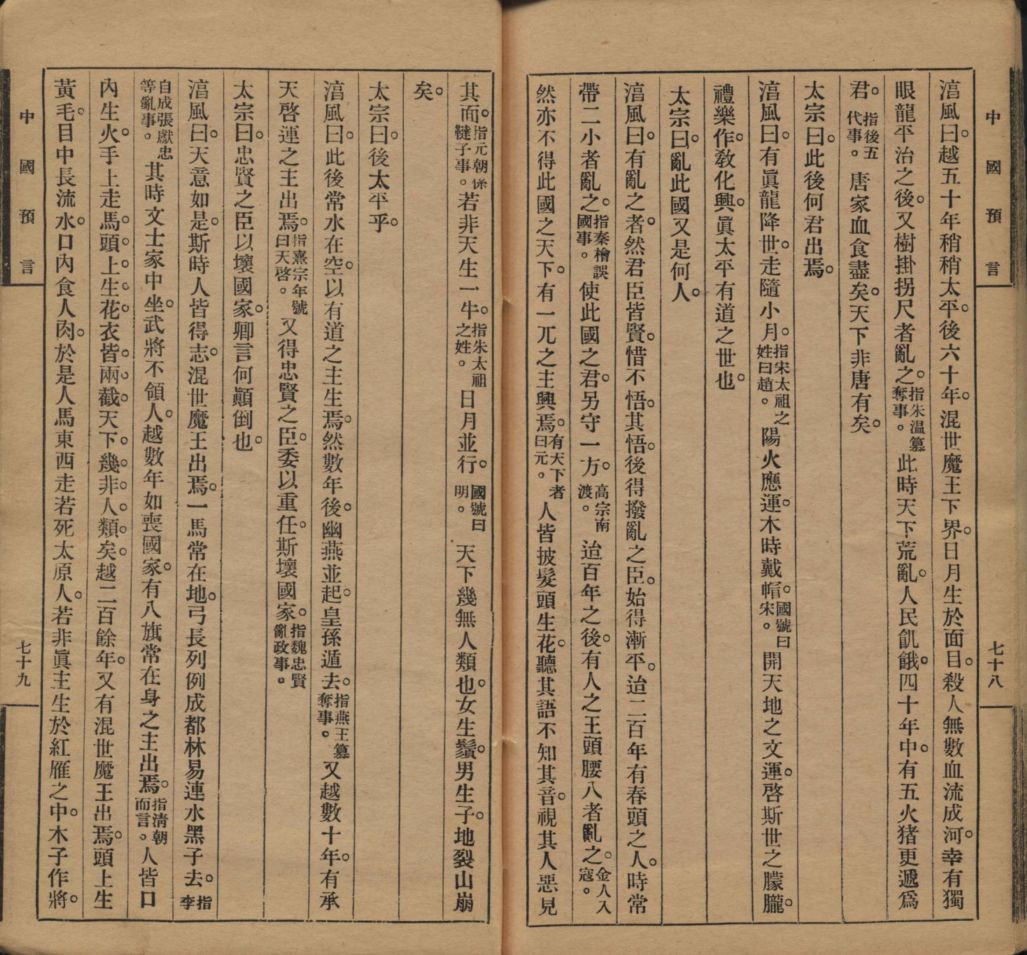 中國預言
七十八
淯風曰越五十年稍稍太平。後六十年。混世魔王下界。日月生於面目。殺人無數血流成河。幸有獨
眼龍平治之後。又樹掛拐尺者亂之。指朱溫篡奪事。此時天下荒亂。人民飢餓。四十年中。有五火猪更遞爲
君。指後五代事。唐家血食盡矣。天下非唐有矣。
太宗曰。此後何君出焉。
淯風曰。有眞龍降世。走隨小月。指宋太祖之姓曰趙。陽火應運。木時戴帽。國號曰宋。開天地之文運。啓斯世之朦朧。
禮樂作。敎化興。眞太平有道之世也。
太宗曰。亂此國又是何人。
淯風曰。有亂之者。然君臣皆賢。惜不悟。其悟後得撥亂之臣。始得漸平。迨二百年有春頭之人。時常
帶二小者亂之。指秦檜誤國事。使此國之君。另守一方。高宗南渡。迨百年之後。有人之王頭腰八者亂之。金人入寇。
然亦不得此國之天下。有一兀之主興焉。有天下者曰元。人皆披髮頭生花。聽其語不知其音。視其人惡見
其面。指元朝係韃子事。若非天生一牛。指朱太祖之姓。日月並行。國號曰明。天下幾無人類也。女生鬚。男生子。地裂山崩
矣。
太宗曰。後太平乎。
淯風曰。此後常水在空。以有道之主生焉。然數年後。幽燕並起。皇孫遁去。指燕王篡奪事。又越數十年。有承
天啓運之主出焉。指熹宗年號曰天啓。又得忠賢之臣。委以重任。斯壞國家。指魏忠賢亂政事。
太宗曰。忠賢之臣以壞國家。卿言何顚倒也。
淯風曰。天意如是。斯時人皆得志。混世魔王出焉。一馬常在地。弓長列例成都林易連水黑子去。指李
自成張獻忠等亂事。其時文士家中坐。武將不領人。越數年如喪國家。有八旗常在身之主出焉。指清朝而言。人皆口
內生火。手上走馬。頭上生花。衣皆兩截。天下幾非人類矣。越二百餘年。又有混世魔王出焉。頭上生
黃毛。目中長流水。口內食人肉。於是人馬東西走。若死太原人。若非眞主生於紅雁之中。木子作將。
中國預言
七十九